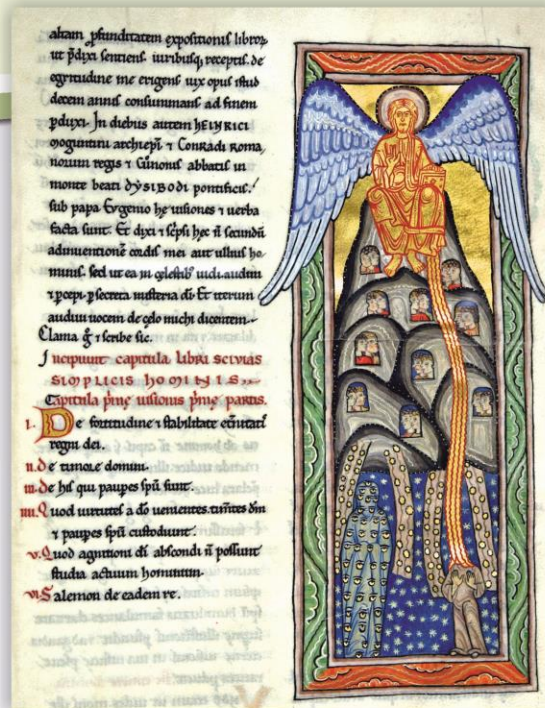 altam ꝓfunditatem expositionis libroꝝ
ut p̄dixi sentiens. uiribusq; receptis de
egritudine me erigens uix opus istud
decem annis consummans ad finem
pduxi. In diebus autem hEINRICI
moguntini archiepi ⁊ Conradi roma,
norum regis ⁊ Cunonis abbatis in
monte beati DYSIBODI pontificis.
sub papa Evgenio he uisiones ⁊ uerba
facta sunt. Et dixi ⁊ sc̄psi hec n̄ secundū
adinuentionē cordis mei aut ullius ho
minis. sed ut ea in celestib; uidi. audiui
⁊ pcepi. ꝑ secreta misteria dī. Et iterum
audiui uocem de celo michi dicentem.
Clama ḡ ⁊ scribe sic.
Incipiunt capitula libri scivias
SIMPLICIS hOMINIS.
Capitula p̄me uisionis p̄me partis.
I. De fortitudine ⁊ stabilitate et̄nitatis
regni dei.
II. De timore domini.
III. De his qui paupes spū sunt.
IIII. Quod uirtutes a dō uenientes. timtes dm̄
⁊ paupes spū custodiunt.
V. Quod agnitioni dī abscondi n̄ possunt
studia actuum hominum.
VI. Salemon de eadem re.